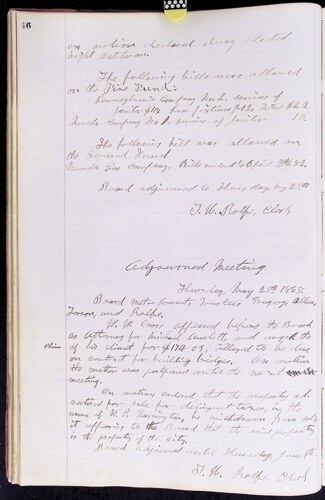 46
on motion declared duly elected
night watchman.
The following bills were allowed
on the Fire Fund:
Pennsylvania Company No 2, services of
janitor
Company No 1, services of janitor 10.
The following bill was allowed on
the General Fund
Gas Company, Bill ending April
Board adjourned to Thursday May 25th
T. W. Rolfe, Clerk
Adjourned Meeting
Thursday, May 25th 1865.
Board met present, Trustees Gregory, Allen,
and Rolfe.
W. W. Cross appeared before the Board
claim
as Attorney for Michael and urged the
of his client for $174.09, alleged to be due
on contract for building bridges. On motion
the matter was postponed until the next
meeting.
On motion ordered, that the property ad-
vertised for sale for delinquent taxes, in the
name of W. P. Harrington, be withdrawn from sale
it appearing to the Board that the said property
is the property of the city.
Board adjourned until Thursday, June 8th
T. W. Rolfe, Clerk